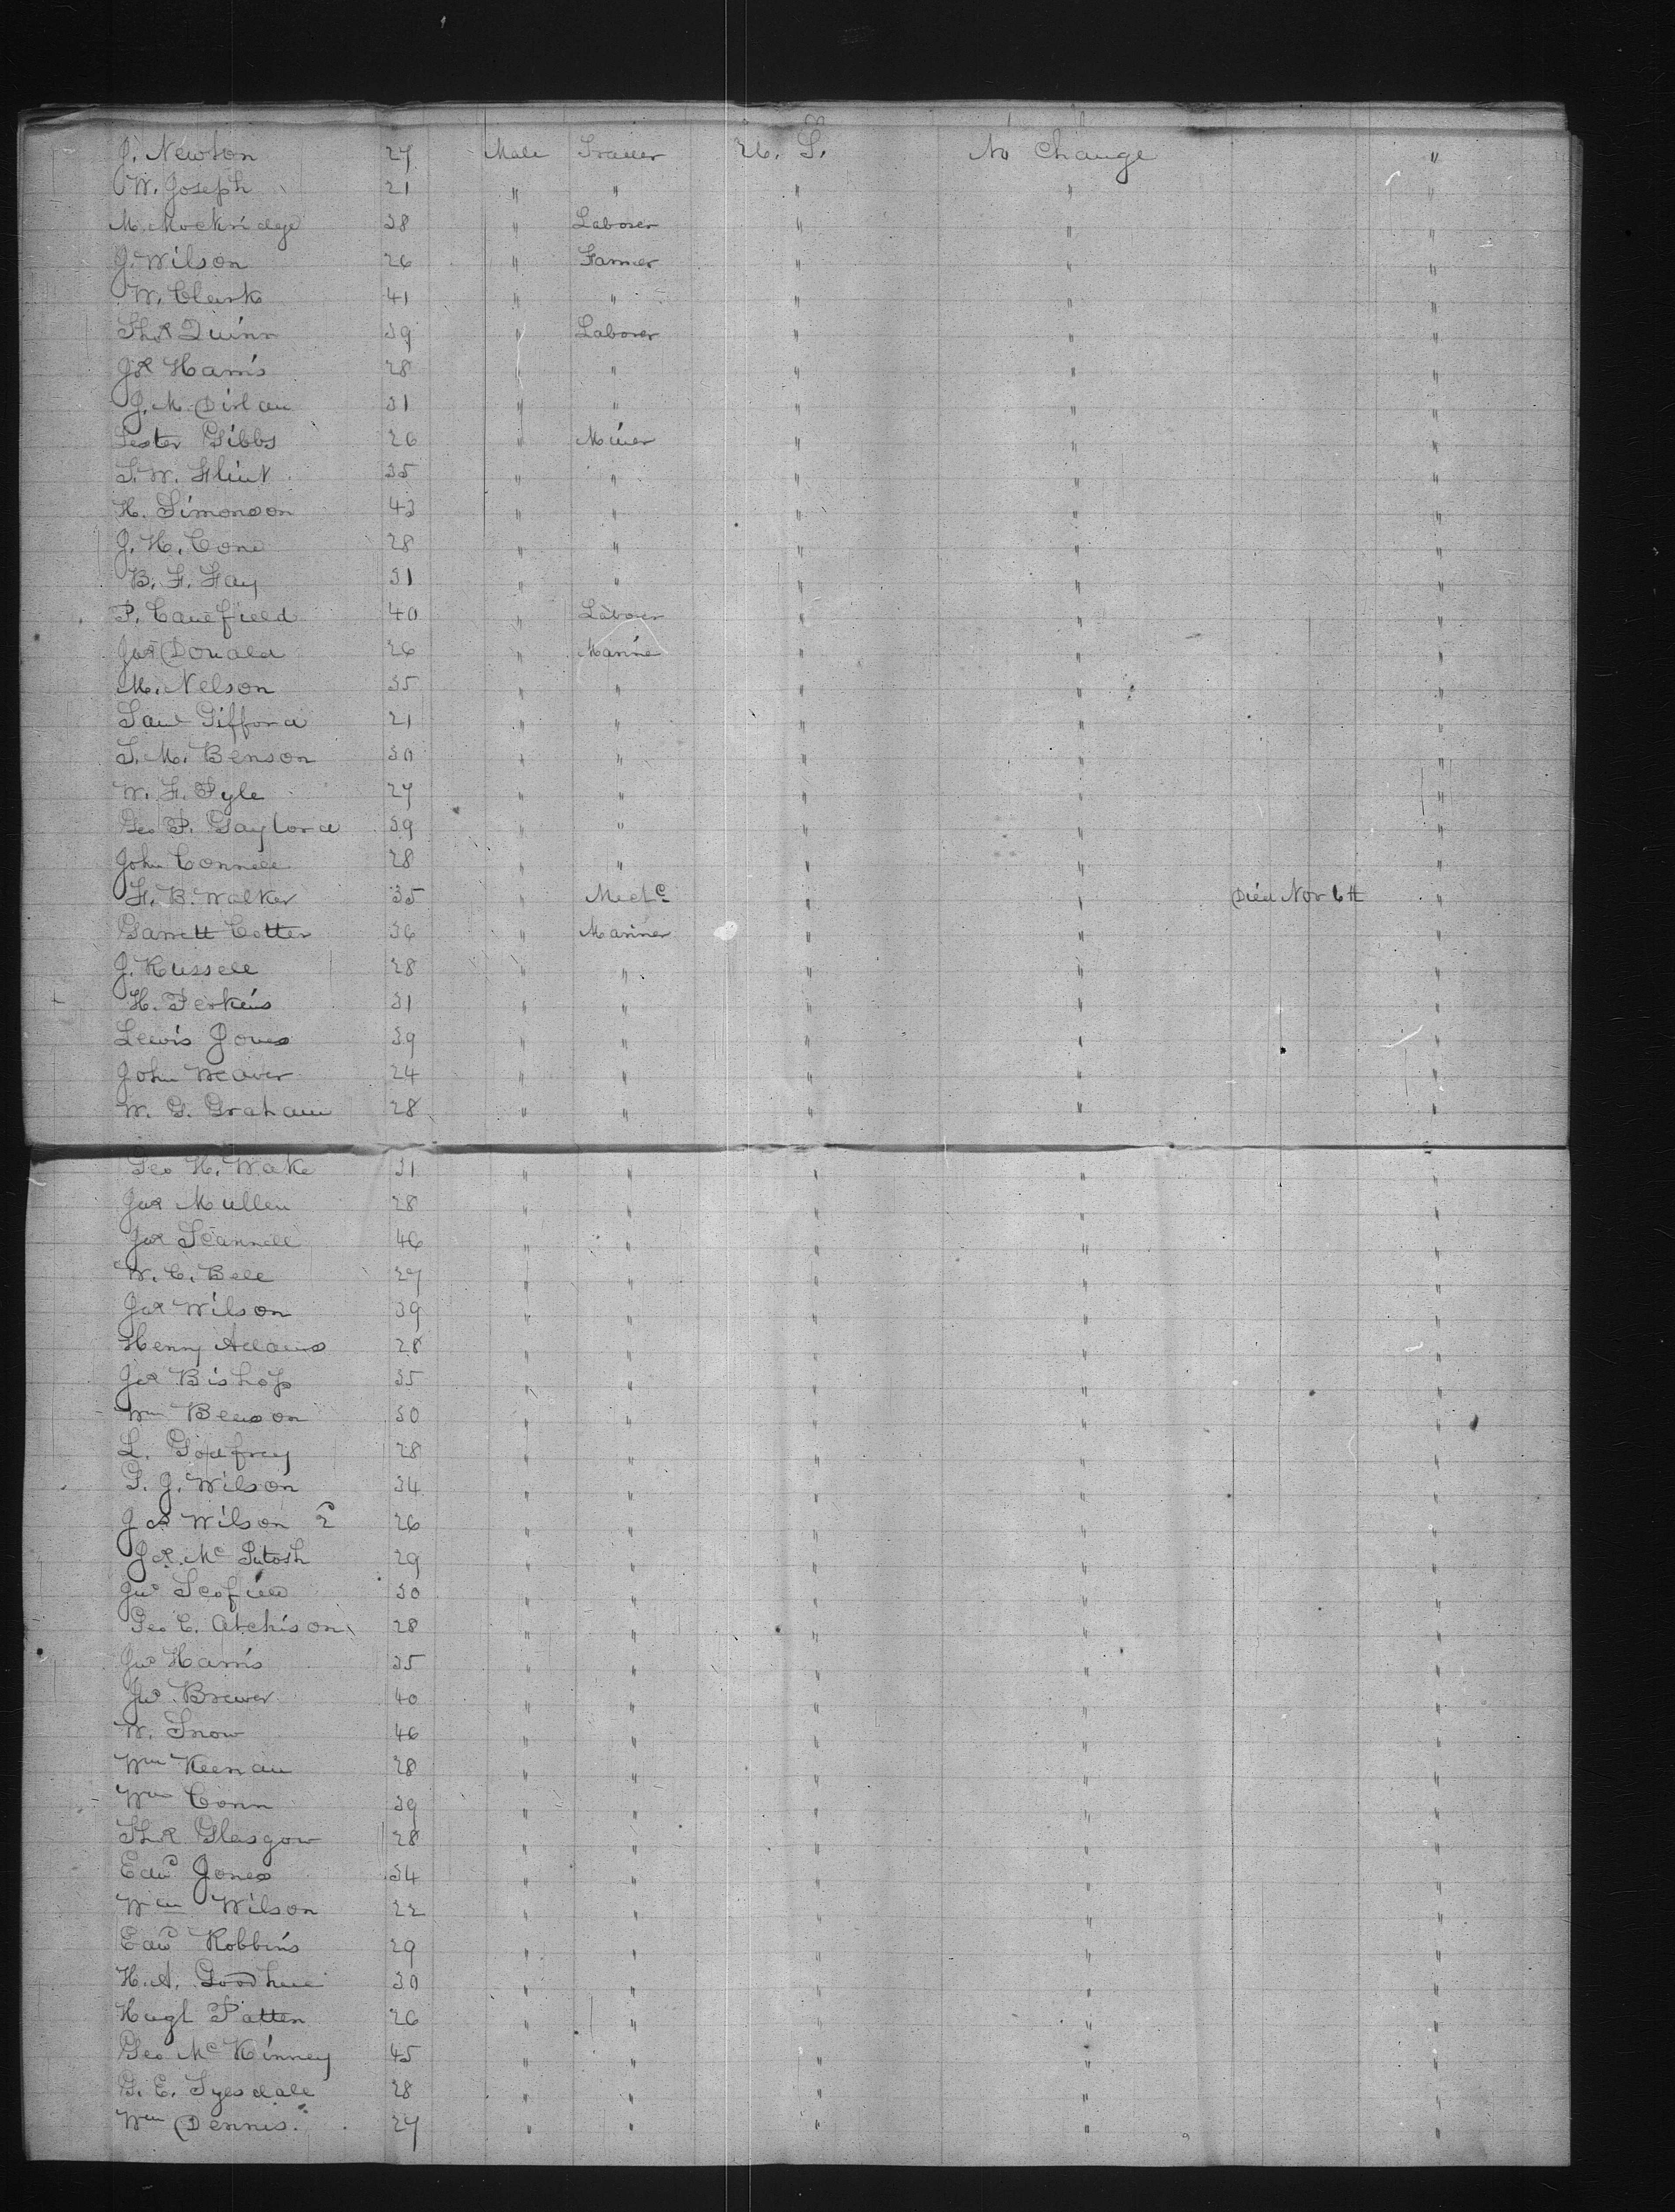 J. Newton 27 Male Trader U. S. No Change "
W. Joseph 21 " " " " "
M. Mockridge 38 " Laborer " " "
J. Wilson 26 " Farmer " " "
W. Clark 41 " " " " "
Thos Quinn 39 " Laborer " " "
Js Harris 28 " " " " "
J. M. Dirlau 31 " " " " "
Lester Gibbs 26 " Miner " " "
S. W. Flint 35 " " " " "
H. Simonson 43 " " " " "
J. H. Cone 28 " " " " "
B. F. Fay 31 " " " " "
P. Caulfield 40 " Laborer " " "
Jas Donald 26 " Mariner " " "
M. Nelson 35 " " " " "
Saml Gifford 21 " " " " "
S. M. Benson 30 " " " " "
W. F. Pyle 27 " " " " "
Geo P. Gaylord 39 " " " " "
John Connell 28 " " " " "
F. B. Walker 35 " Mechc " " Died Nov 6th "
Garrett Cotter 36 " Mariner " " "
J. Russell 28 " " " " "
H. Perkins 31 " " " " "
Lewis Jones 39 " " " " "
John Weaver 24 " " " " "
W. G. Graham 28 " " " " "
Geo H. Wake 31 " " " " "
Jas Mullen 28 " " " " "
Jas Scannell 46 " " " " "
W. C. Bell 27 " " " " "
Jas Wilson 39 " " " " "
Henry Adams 28 " " " " "
Jas Bishop 35 " " " " "
Wm Benson 30 " " " " "
L. Godfrey 28 " " " " "
P. J. Wilson 34 " " " " "
Jas Wilson 2d 26 " " " " "
Jas. Mc Intosh 29 " " " " "
Jno Scofield 30 " " " " "
Geo C. Atchison 28 " " " " "
Jno Harris 35 " " " " "
Jno Brewer 40 " " " " "
W. Snow 46 " " " " "
Wm Keenan 28 " " " " "
Wm Conn 39 " " " " "
Thos Glasgow 28 " " " " "
Edwd Jones 34 " " " " "
Wm Wilson 22 " " " " "
Edwd Robbins 29 " " " " "
H. A. Goodhue 30 " " " " "
Hugh Patten 26 " " " " "
Geo Mc Kinney 45 " " " " "
G. E. Tyesdale 28 " " " " "
Wm Dennis. 27 " " " " "